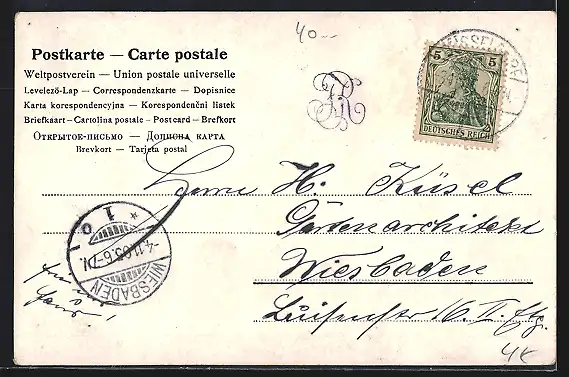 40--
Postkarte — Carte postale
Weltpostverein — Union postale universelle
Levelező-Lap — Correspondenzkarte — Dopisnice
Karta korespondencyjna — Korespondenční listek
Briefkaart — Cartolina postale — Postcard — Brefkort
Открытое-письмо — Дописна карта
Brevkort — Tarjeta postal
5 5
DEUTSCHES REICH
Herrn H. Küsel
Gartenarchitekt
Wiesbaden
Luisenstr 16 II. Etg.
WIESBADEN
4.11.05. 6-7N.
* 1 c